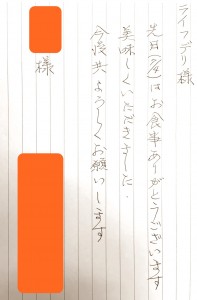 ライフデリ様
先日(7/4)はお食事ありがとうございます
美味しくいただきました.
今後共よろしくお願いします
様